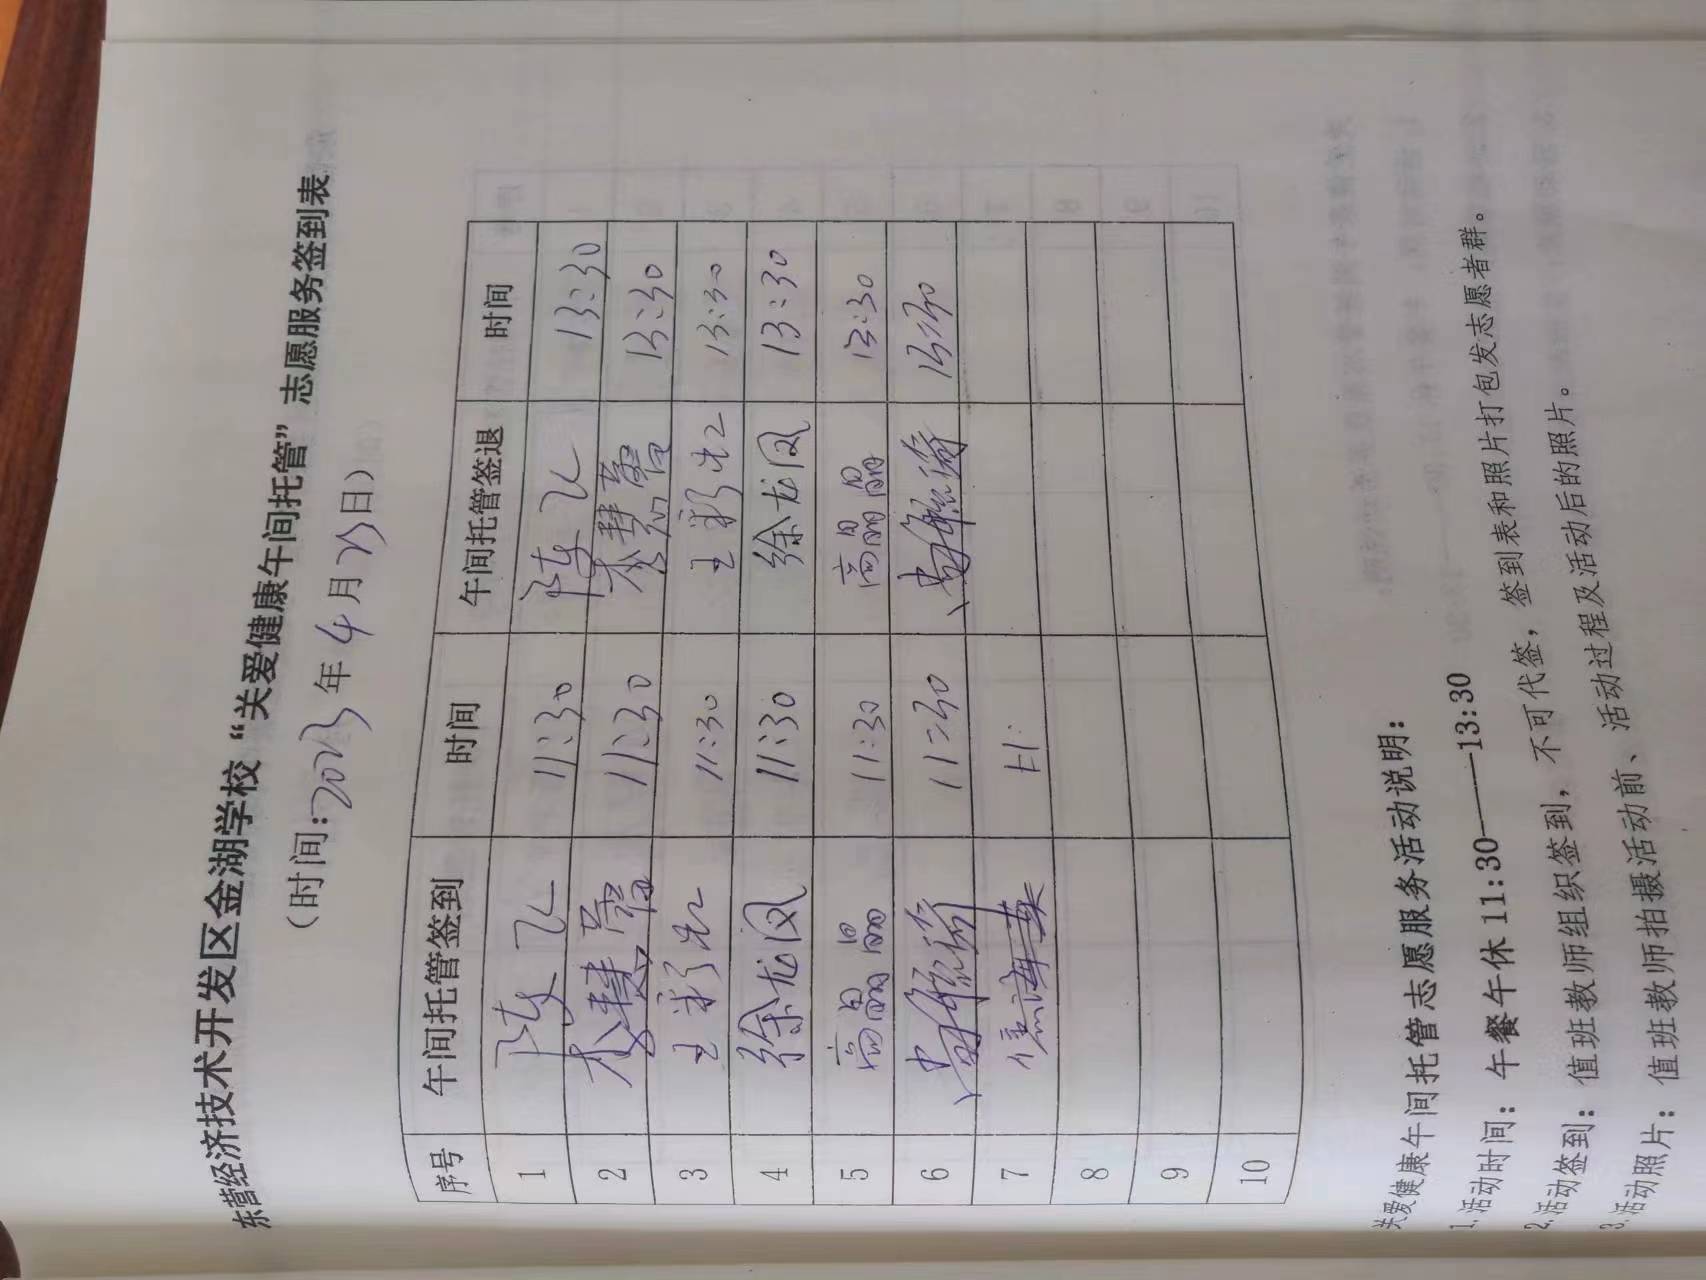 东营经济技术开发区金湖学校“关爱健康午间托管”志愿服务签到表
(时间:2023年4月23日)
序号 午间托管签到 时间 午间托管签退 时间
1 陈飞 11:30 陈飞 13:30
2 李慧蓉 11:30 13:30
3 王彩虹 11:30 王彩虹 13:30
4 徐龙凤 11:30 徐龙凤 13:30
5 高晶晶 11:30 高晶晶 13:30
6 11:30 13:30
7
8
9
10
关爱健康午间托管志愿服务活动说明:
1.活动时间:午餐午休11:30——13:30
2.活动签到:值班教师组织签到,不可代签,签到表和照片打包发志愿者群。
3.活动照片:值班教师拍摄活动前、活动过程及活动后的照片。